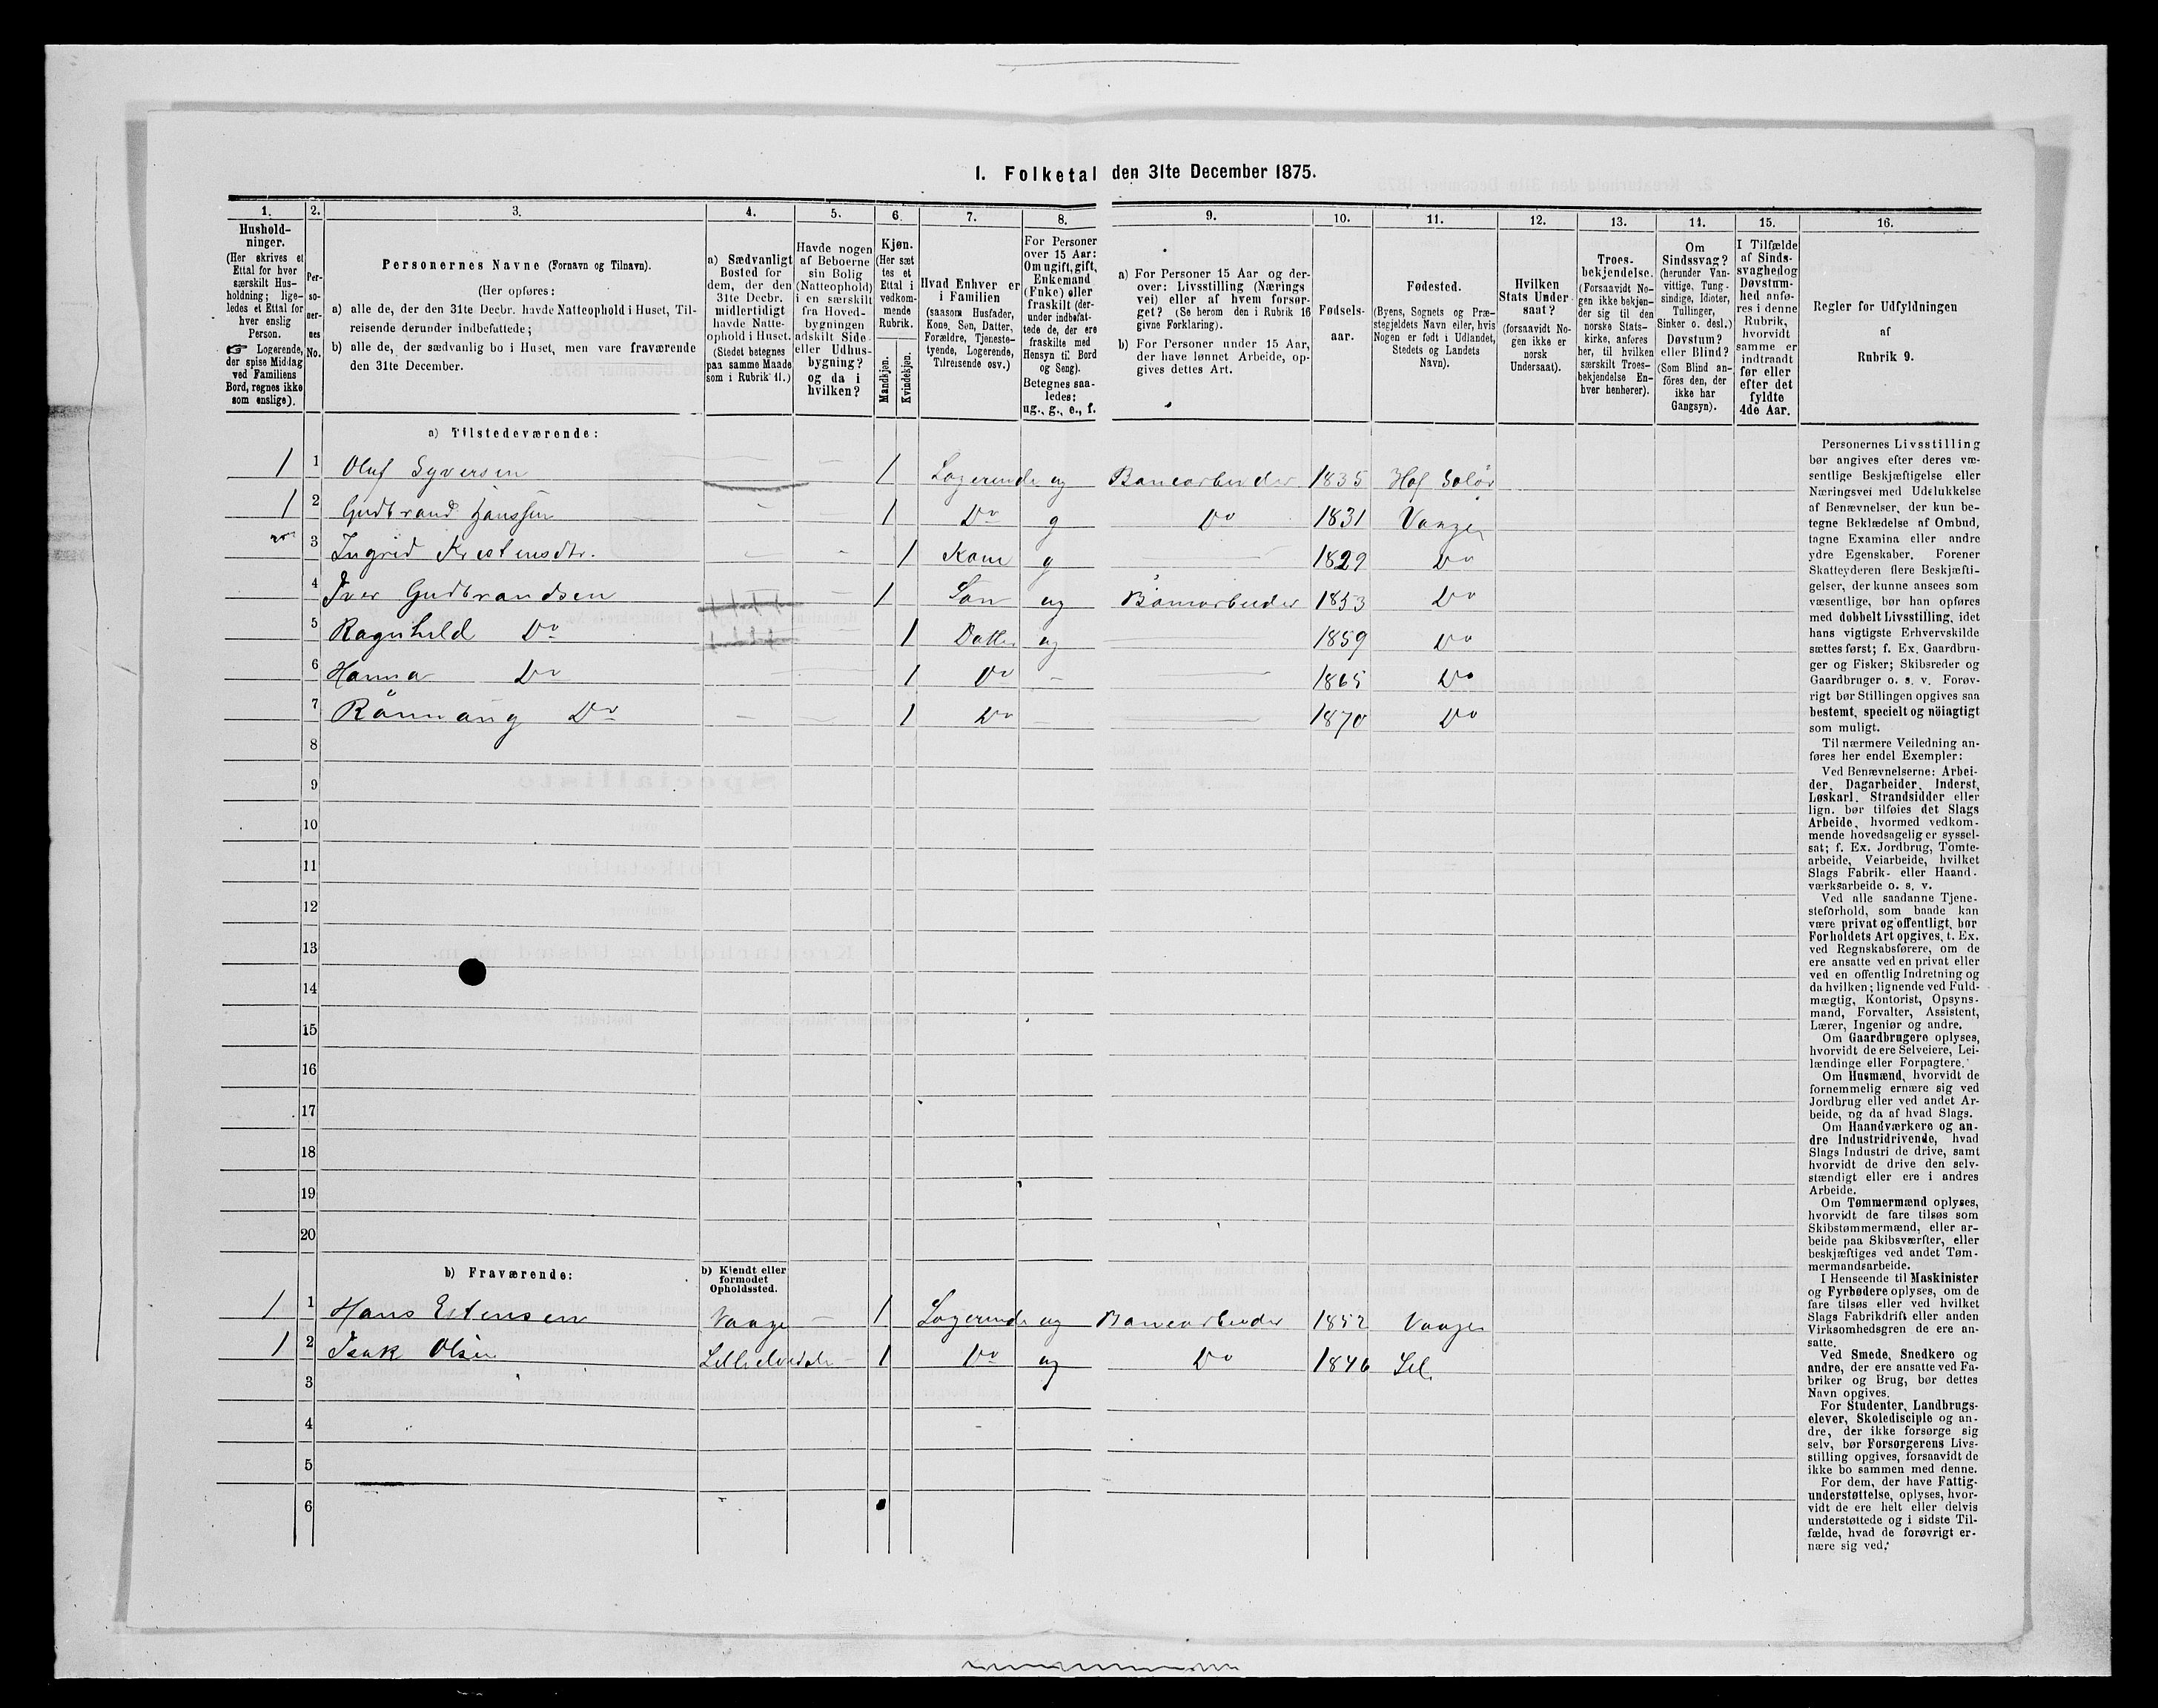 I. Folketal den 31te December 1875.
1. 2. 3. 4. 5. 6. 7. 8. 9. 10. 11. 12. 13. 14. 15. 16.
Hushold-
ninger.
(Her skrives et
Ettal for hver
særskilt Hus-
holdning; lige-
ledes et Ettal for
hver enslig
Person.
☞ Logerende,
der spise Middag
ved Familiens
Bord, regnes ikke
som enslige).
Per-
so-
ner-
nes
No.
Personernes Navne (Fornavn og Tilnavn).
(Her opføres:
a) alle de, der den 31te Decbr. havde Natteophold i Huset, Til-
reisende derunder indbefattede;
b) alle de, der sædvanlig bo i Huset, men vare fraværende
den 31te December.
a) Sædvanligt
Bosted for
dem, der den
31te Decbr.
midlertidigt
havde Natte-
ophold i Huset.
(Stedet betegnes
paa samme Maade
som i Rubrik 11.)
Havde nogen
af Beboerne
sin Bolig
(Natteophold)
i en særskilt
fra Hoved-
bygningen
adskilt Side-
eller Udhus-
bygning?
og da i
hvilken?
Kjøn.
(Her sæt
tes et
Ettal i
vedkom-
mende
Rubrik.
Mandkjøn.
Kvindekjøn.
Hvad Enhver er
i Familien
(saasom Husfader,
Kone, Søn, Datter,
Forældre, Tjeneste-
tyende, Logerende,
Tilreisende osv.)
For Personer
over 15 Aar:
Om ugift, gift,
Enkemand
(Enke) eller
fraskilt (der-
under indbefat-
tede de, der ere
fraskilte med
Hensyn til Bord
og Seng).
Betegnes saa-
ledes:
ug., g., e., f.
a) For Personer 15 Aar og der-
over: Livsstilling (Nærings
vei) eller af hvem forsør-
get? (Se herom den i Rubrik 16
givne Forklaring).
b) For Personer under 15 Aar,
der have lønnet Arbeide, op-
gives dettes Art.
Fødsels-
aar.
Fødested.
(Byens, Sognets og Præ-
stegjeldets Navn eller, hvis
Nogen er født i Udlandet,
Stedets og Landets
Navn).
Hvilken
Stats Under-
saat?
(forsaavidt No-
gen ikke er
norsk
Undersaat).
Troes-
bekjendelse.
(Forsaavidt No-
gen ikke bekjen-
der sig til den
norske Stats-
kirke, anføres
her, til hvilken
særskilt Troes-
bekjendelse En-
hver henhører).
Om
Sindssvag?
(herunder Van-
vittige, Tung-
sindige, Idioter,
Tullinger,
Sinker o. desl.)
Døvstum?
eller Blind?
(Som Blind an-
føres den, der
ikke har
Gangsyn).
I Tilfælde
af Sinds-
svaghed og
Døvstum-
hed anfø-
res i denne
Rubrik,
hvorvidt
samme er
indtraadt
før eller
efter det
fyldte
4de Aar.
Regler for Udfyldningen
af
Rubrik 9.
a) Tilstedeværende:
1 1 Oluf Syversen 1 Logerende ug Banearbeider 1835 Hof Solör
1 2 Gudbrand Hanssen 1 Do g Do 1831 Vange
3 Ingrid Kristensdtr. 1 Kone g 1829 Do
4 Iver Gudbrandsen 1 Sön ug Banearbeider 1853 Do
5 Ragnhild Do 1 Datter ug 1859 Do
6 Hanna Do 1 Do 1865 Do
7 Rönnaug Do 1 Do 1870 Do
8
9
10
11
12
13
14
15
16
17
18
19
20
b) Fraværende:
b) Kjendt eller
formodet
Opholdssted.
1 1 Hans Estensen Vange 1 Logerende ug Banearbeider 1852 Vange
1 2 Isak Olsen Lilleelvedale 1 Do ug Do 1846 Lil.
3
4
5
6
Personernes Livsstilling
bør angives efter deres væ-
sentlige Beskjæftigelse eller
Næringsvei med Udelukkelse
af Benævnelser, der kun be-
tegne Beklædelse af Ombud,
tagne Examina eller andre
ydre Egenskaber. Forener
Skatteyderen flere Beskjæfti-
gelser, der kunne ansees som
væsentlige, bør han opføres
med dobbelt Livsstilling, idet
hans vigtigste Erhvervskilde
sættes først; f. Ex. Gaardbru-
ger og Fisker; Skibsreder og
Gaardbruger o. s. v. Forøv-
rigt bør Stillingen opgives saa
bestemt, specielt og nöiagtigt
som muligt.
Til nærmere Veiledning an-
føres her endel Exempler:
Ved Benævnelserne: Arbei-
der, Dagarbeider, Inderst,
Løskarl, Strandsidder eller
lign. bør tilføies det Slags
Arbeide, hvormed vedkom-
mende hovedsagelig er syssel-
sat; f. Ex. Jordbrug, Tomte-
arbeide, Veiarbeide, hvilket
Slags Fabrik- eller Haand-
værksarbeide o. s. v.
Ved alle saadanne Tjene-
steforhold, som baade kan
være privat og offentligt, bør
Forholdets Art opgives, t. Ex.
ved Regnskabsførere, om de
ere ansatte ved en privat eller
ved en offentlig Indretning og
da hvilken; lignende ved Fuld-
mægtig, Kontorist, Opsyns-
mand, Forvalter, Assistent,
Lærer, Ingeniør og andre.
Om Gaardbrugere oplyses,
hvorvidt de ere Selveiere, Lei-
lændinge eller Forpagtere.
Om Husmænd, hvorvidt de
fornemmelig ernære sig ved
Jordbrug eller ved andet Ar-
beide, og da af hvad Slags.
Om Haandværkere og an-
dre Industridrivende, hvad
Slags Industri de drive, samt
hvorvidt de drive den selv-
stændigt eller ere i andres
Arbeide.
Om Tømmermænd oplyses,
hvorvidt de fare tilsøs som
Skibstømmermænd, eller ar-
beide paa Skibsværfter, eller
beskjæftiges ved andet Tøm-
mermandsarbeide.
I Henseende til Maskinister
og Fyrbødere oplyses, om de
fare tilsøs eller ved hvilket
Slags Fabrikdrift eller anden
Virksomhedsgren de ere an-
satte.
Ved Smede, Snedkere og
andre, der ere ansatte ved Fa-
briker og Brug, bør dettes
Navn opgives.
For Studenter, Landbrugs-
elever, Skoledisciple og an-
dre, der ikke forsørge sig
selv, bør Forsørgerens Livs-
stilling opgives, forsaavidt de
ikke bo sammen med denne.
For dem, der have Fattig-
understøttelse, oplyses, hvor-
vidt de ere helt eller delvis
understøttede og i sidste Til-
fælde, hvad de forøvrigt er-
nære sig ved.